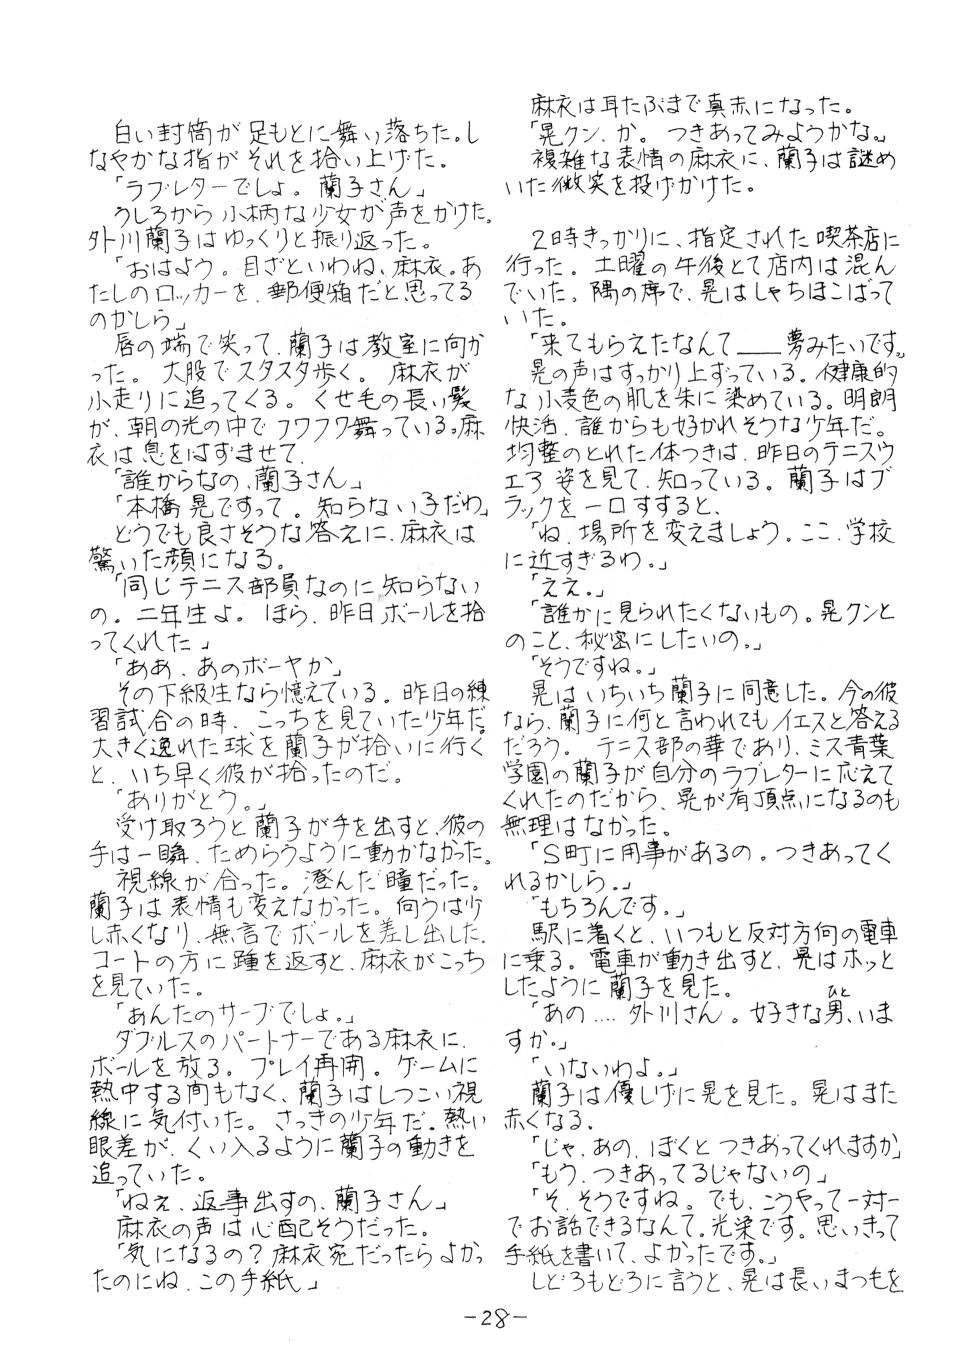 白い封筒が足もとに舞い落ちた。し
なやかな指がそれを拾い上げた。
「ラブレターでしょ。蘭子さん」
うしろから小柄な少女が声をかけた。
外川蘭子はゆっくりと振り返った。
「おはよう。目ざといわね、麻衣。あ
たしのロッカーを、郵便箱だと思ってる
のかしら」
唇の端で笑って、蘭子は教室に向か
った。大股でスタスタ歩く。麻衣が
小走りに追ってくる。くせ毛の長い髪
が、朝の光の中でフワフワ舞っている。麻
衣は息をはずませて、
「誰からなの、蘭子さん」
「本橋晃ですって。知らない子だわ」
どうでも良さそうな答えに、麻衣は
驚いた顔になる。
「同じテニス部員なのに、知らない
の。二年生よ。ほら、昨日ボールを拾
ってくれた」
「ああ、あのボーヤか」
その下級生なら憶えている。昨日の練
習試合の時、こっちを見ていた少年だ。
大きく逸れた球を蘭子が拾いに行く
と、いち早く彼が拾ったのだ。
「ありがとう。」
受け取ろうと蘭子が手を出すと、彼の
手は一瞬、ためらうように動かなかった。
視線が合った。澄んだ瞳だった。
蘭子は表情も変えなかった。向うは少
し赤くなり、無言でボールを差し出した。
コートの方に踵を返すと、麻衣がこっち
を見ていた。
「あんたのサーブでしょ。」
ダブルスのパートナーである麻衣に、
ボールを放る。プレイ再開。ゲームに
熱中する間もなく、蘭子はしつこい視
線に気付いた。さっきの少年だ。熱い
眼差が、くい入るように蘭子の動きを
追っていた。
「ねえ、返事出すの、蘭子さん」
麻衣の声は心配そうだった。
「気になるの？麻衣宛だったらよかっ
たのにね、この手紙」
麻衣は耳たぶまで真赤になった。
「晃クン、か。つきあってみようかな。」
複雑な表情の麻衣に、蘭子は謎め
いた微笑を投げかけた。
2時きっかりに、指定された喫茶店に
行った。土曜の午後とて店内は混ん
でいた。隅の席で、晃はしゃちほこばって
いた。
「来てもらえたなんて——夢みたいです。」
晃の声はすっかり上ずっている。健康的
な小麦色の肌を朱に染めている。明朗
快活、誰からも好かれそうな少年だ。
均整のとれた体つきは、昨日のテニスウ
エア姿を見て、知っている。蘭子はブ
ラックを一口すすると、
「ね、場所を変えましょう。ここ、学校
に近すぎるわ。」
「ええ。」
「誰かに見られたくないもの。晃クンと
のこと、秘密にしたいの。」
「そうですね。」
晃はいちいち蘭子に同意した。今の彼
なら、蘭子に何と言われてもイエスと答える
だろう。テニス部の華であり、ミス青葉
学園の蘭子が自分のラブレターに応えて
くれたのだから、晃が有頂点になるのも
無理はなかった。
「S町に用事があるの。つきあってく
れるかしら。」
「もちろんです。」
駅に着くと、いつもと反対方向の電車
に乗る。電車が動き出すと、晃はホッと
したように蘭子を見た。
「あの‥‥外川さん。好きな男(ひと)、いま
すか。」
「いないわよ。」
蘭子は優しげに晃を見た。晃はまた
赤くなる。
「じゃ、あの、ぼくとつきあってくれますか」
「もう、つきあってるじゃないの」
「そ、そうですね。でも、こうやって一対一
でお話できるなんて。光栄です。思いきって
手紙を書いて、よかったです。」
しどろもどろに言うと、晃は長いまつ毛を
-28-